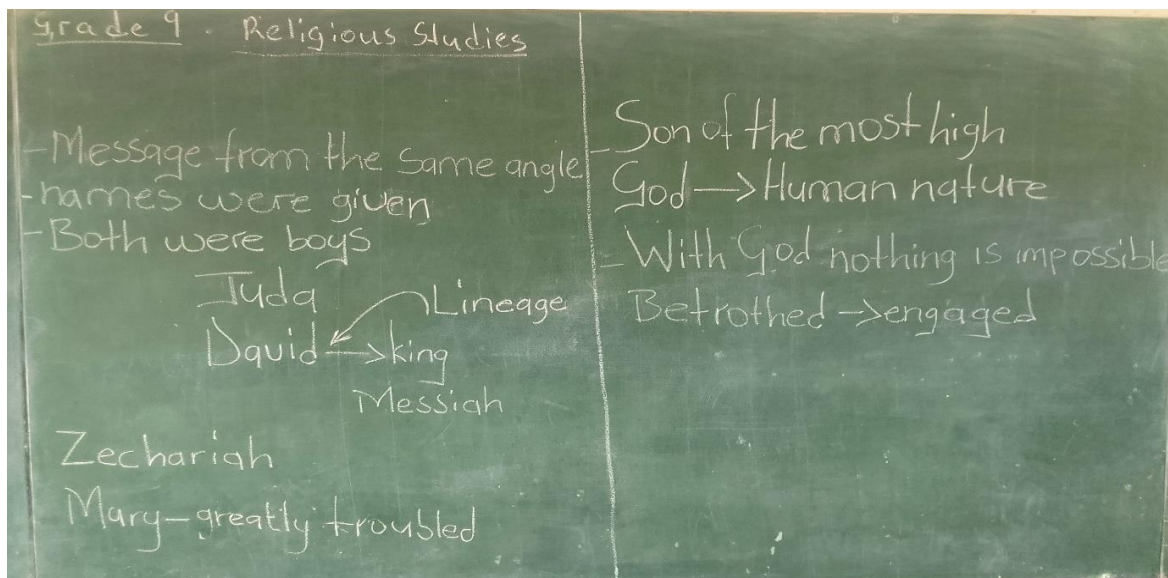 Grade 9. Religious Studies
- Message from the same angle
- names were given
- Both were boys
Juda
Lineage
David → king
Messiah
Zechariah
Mary - greatly troubled
- Son of the most high
God → Human nature
- With God nothing is impossible
Betrothed → engaged